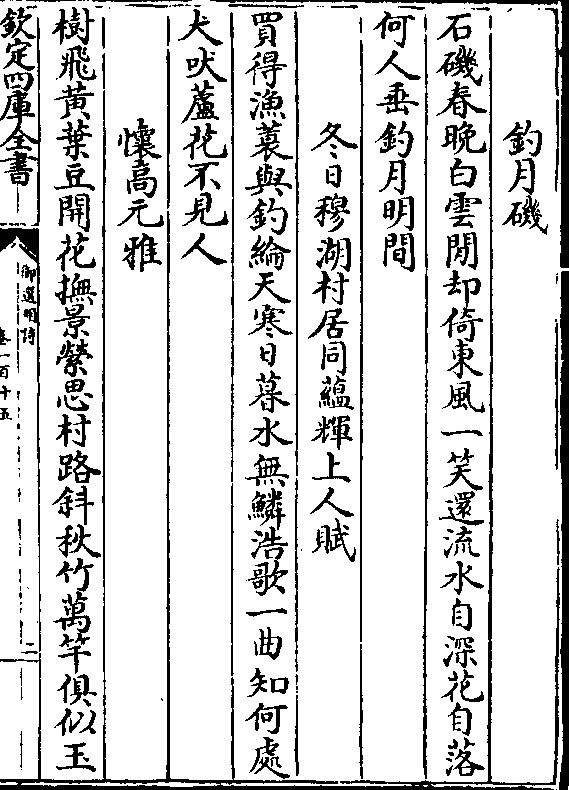 釣月磯
石磯春晚白雲閒却倚東風一笑還流水自深花自落
何人垂釣月明間
冬日穆湖村居同藴輝上人賦
買得漁蓑與釣綸天寒日暮水無鱗浩歌一曲知何處
犬吠蘆花不見人
懷高元雅
樹飛黃葉豆開花撫景縈思村路斜秋竹萬竿俱似玉
欽定四庫全書
御選明詩
卷一百十五
二